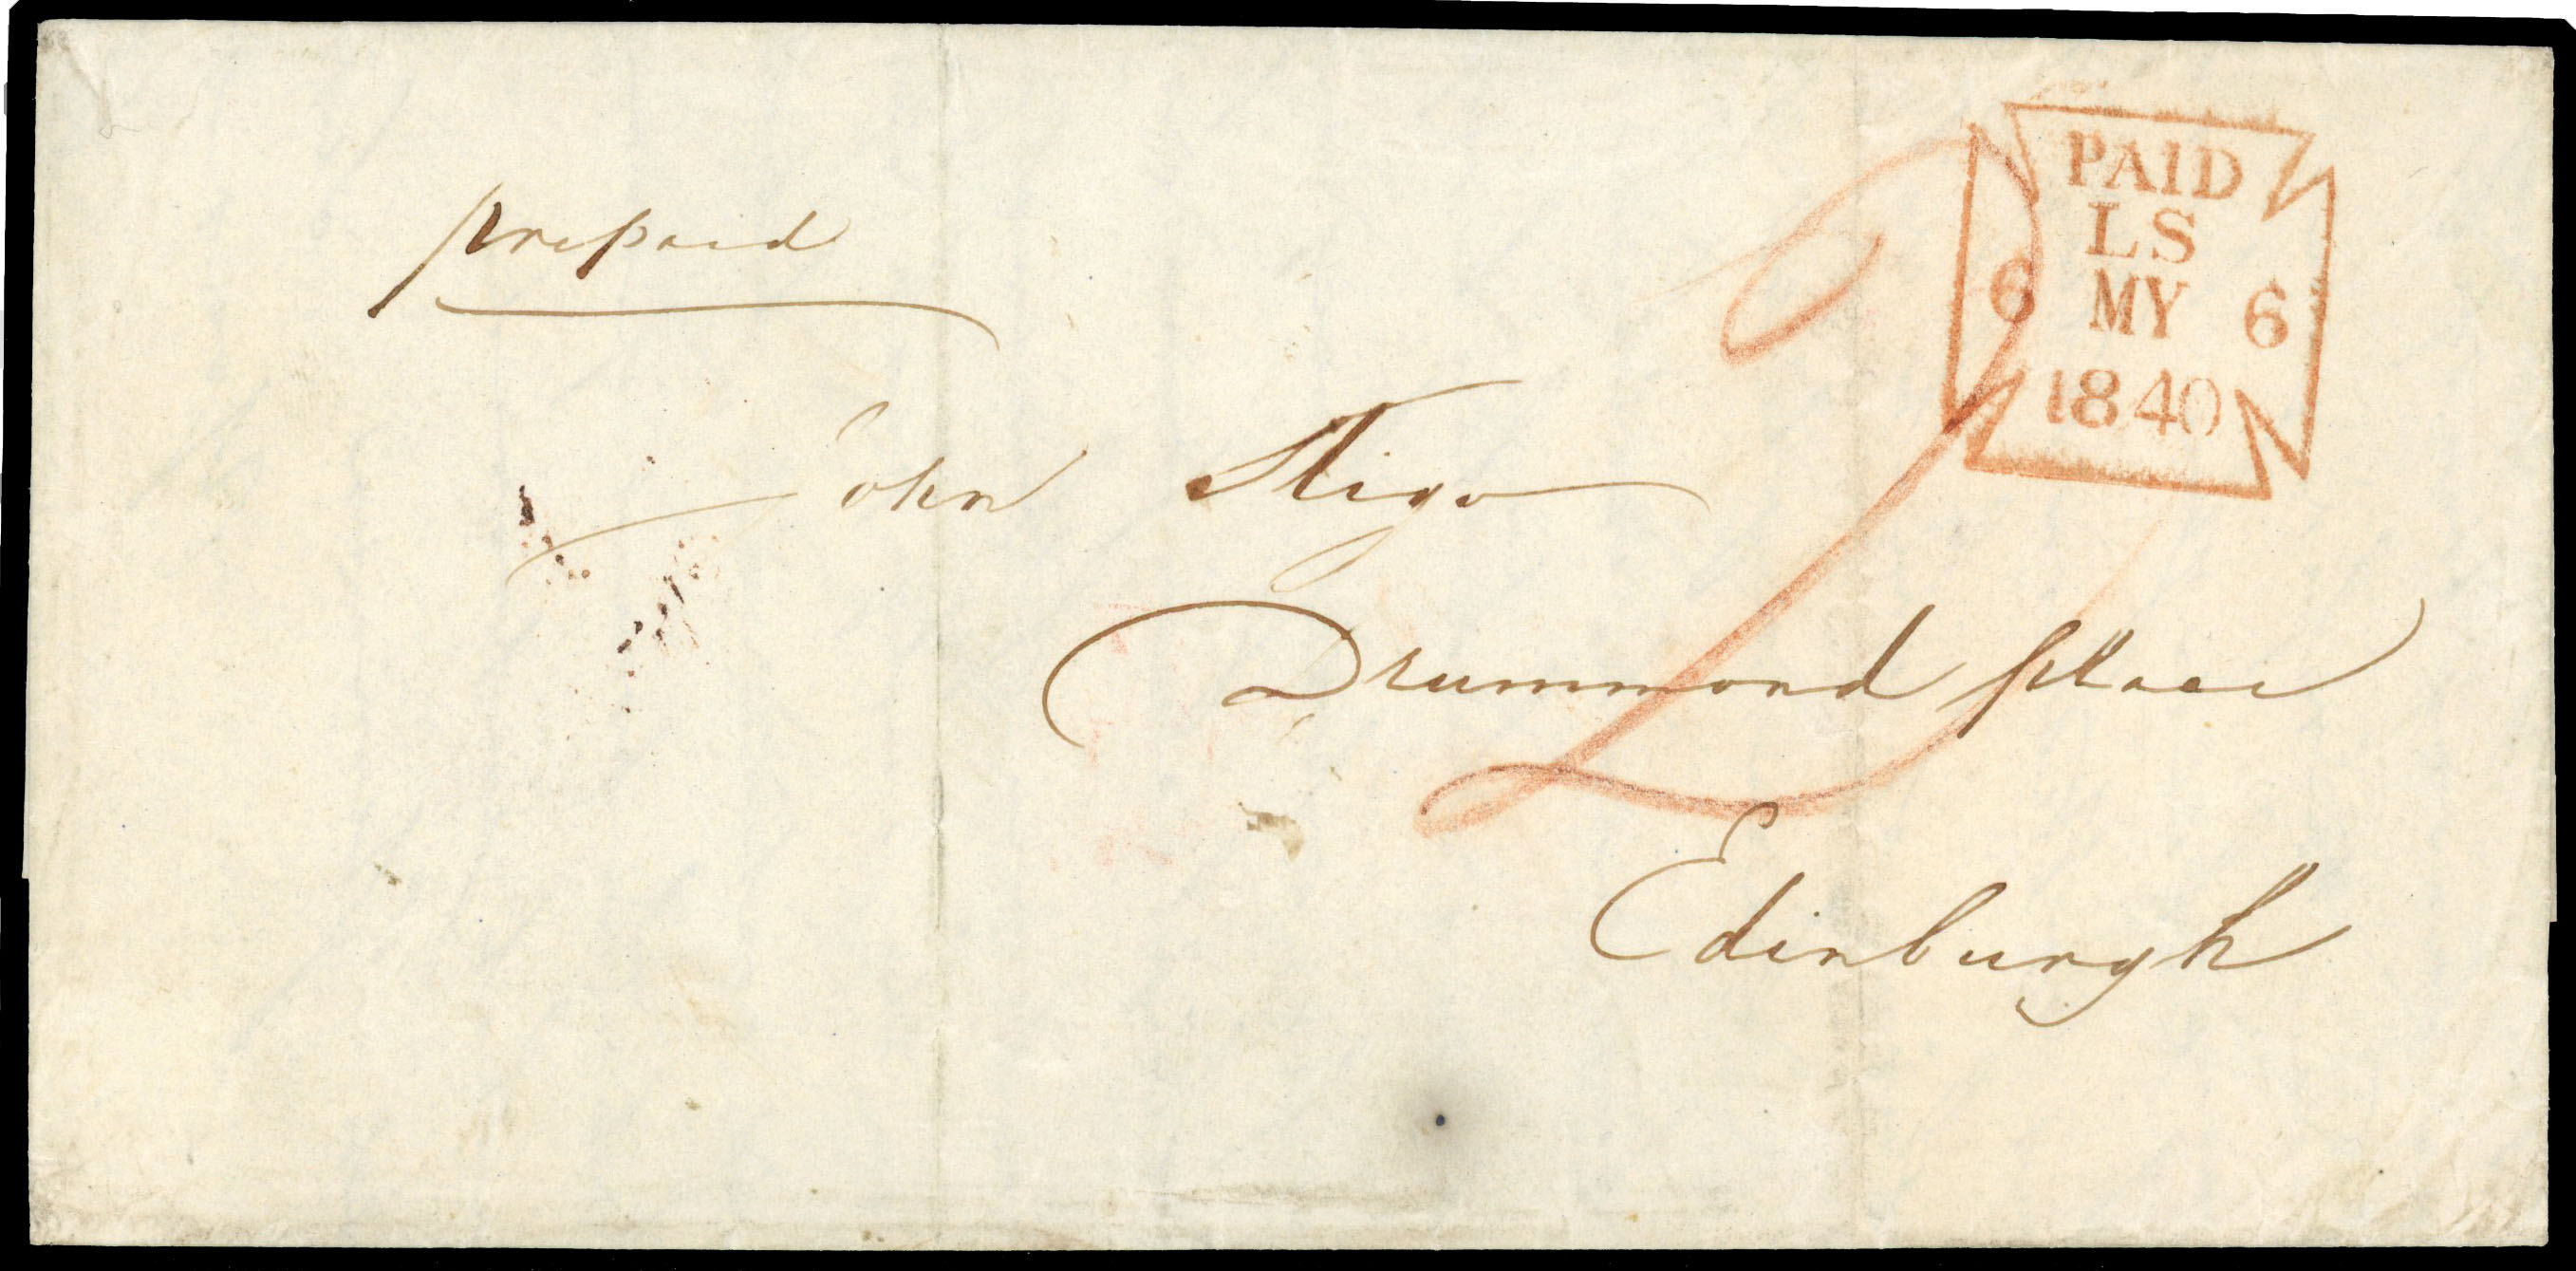 prepaid
PAID
LS
6 MY 6
1840
2
John
Drummond place
Edinburgh